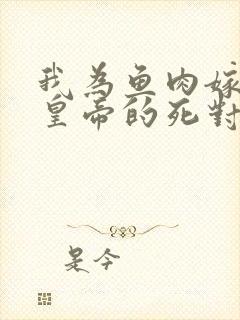 我为鱼肉嫁
皇帝的死對
是今